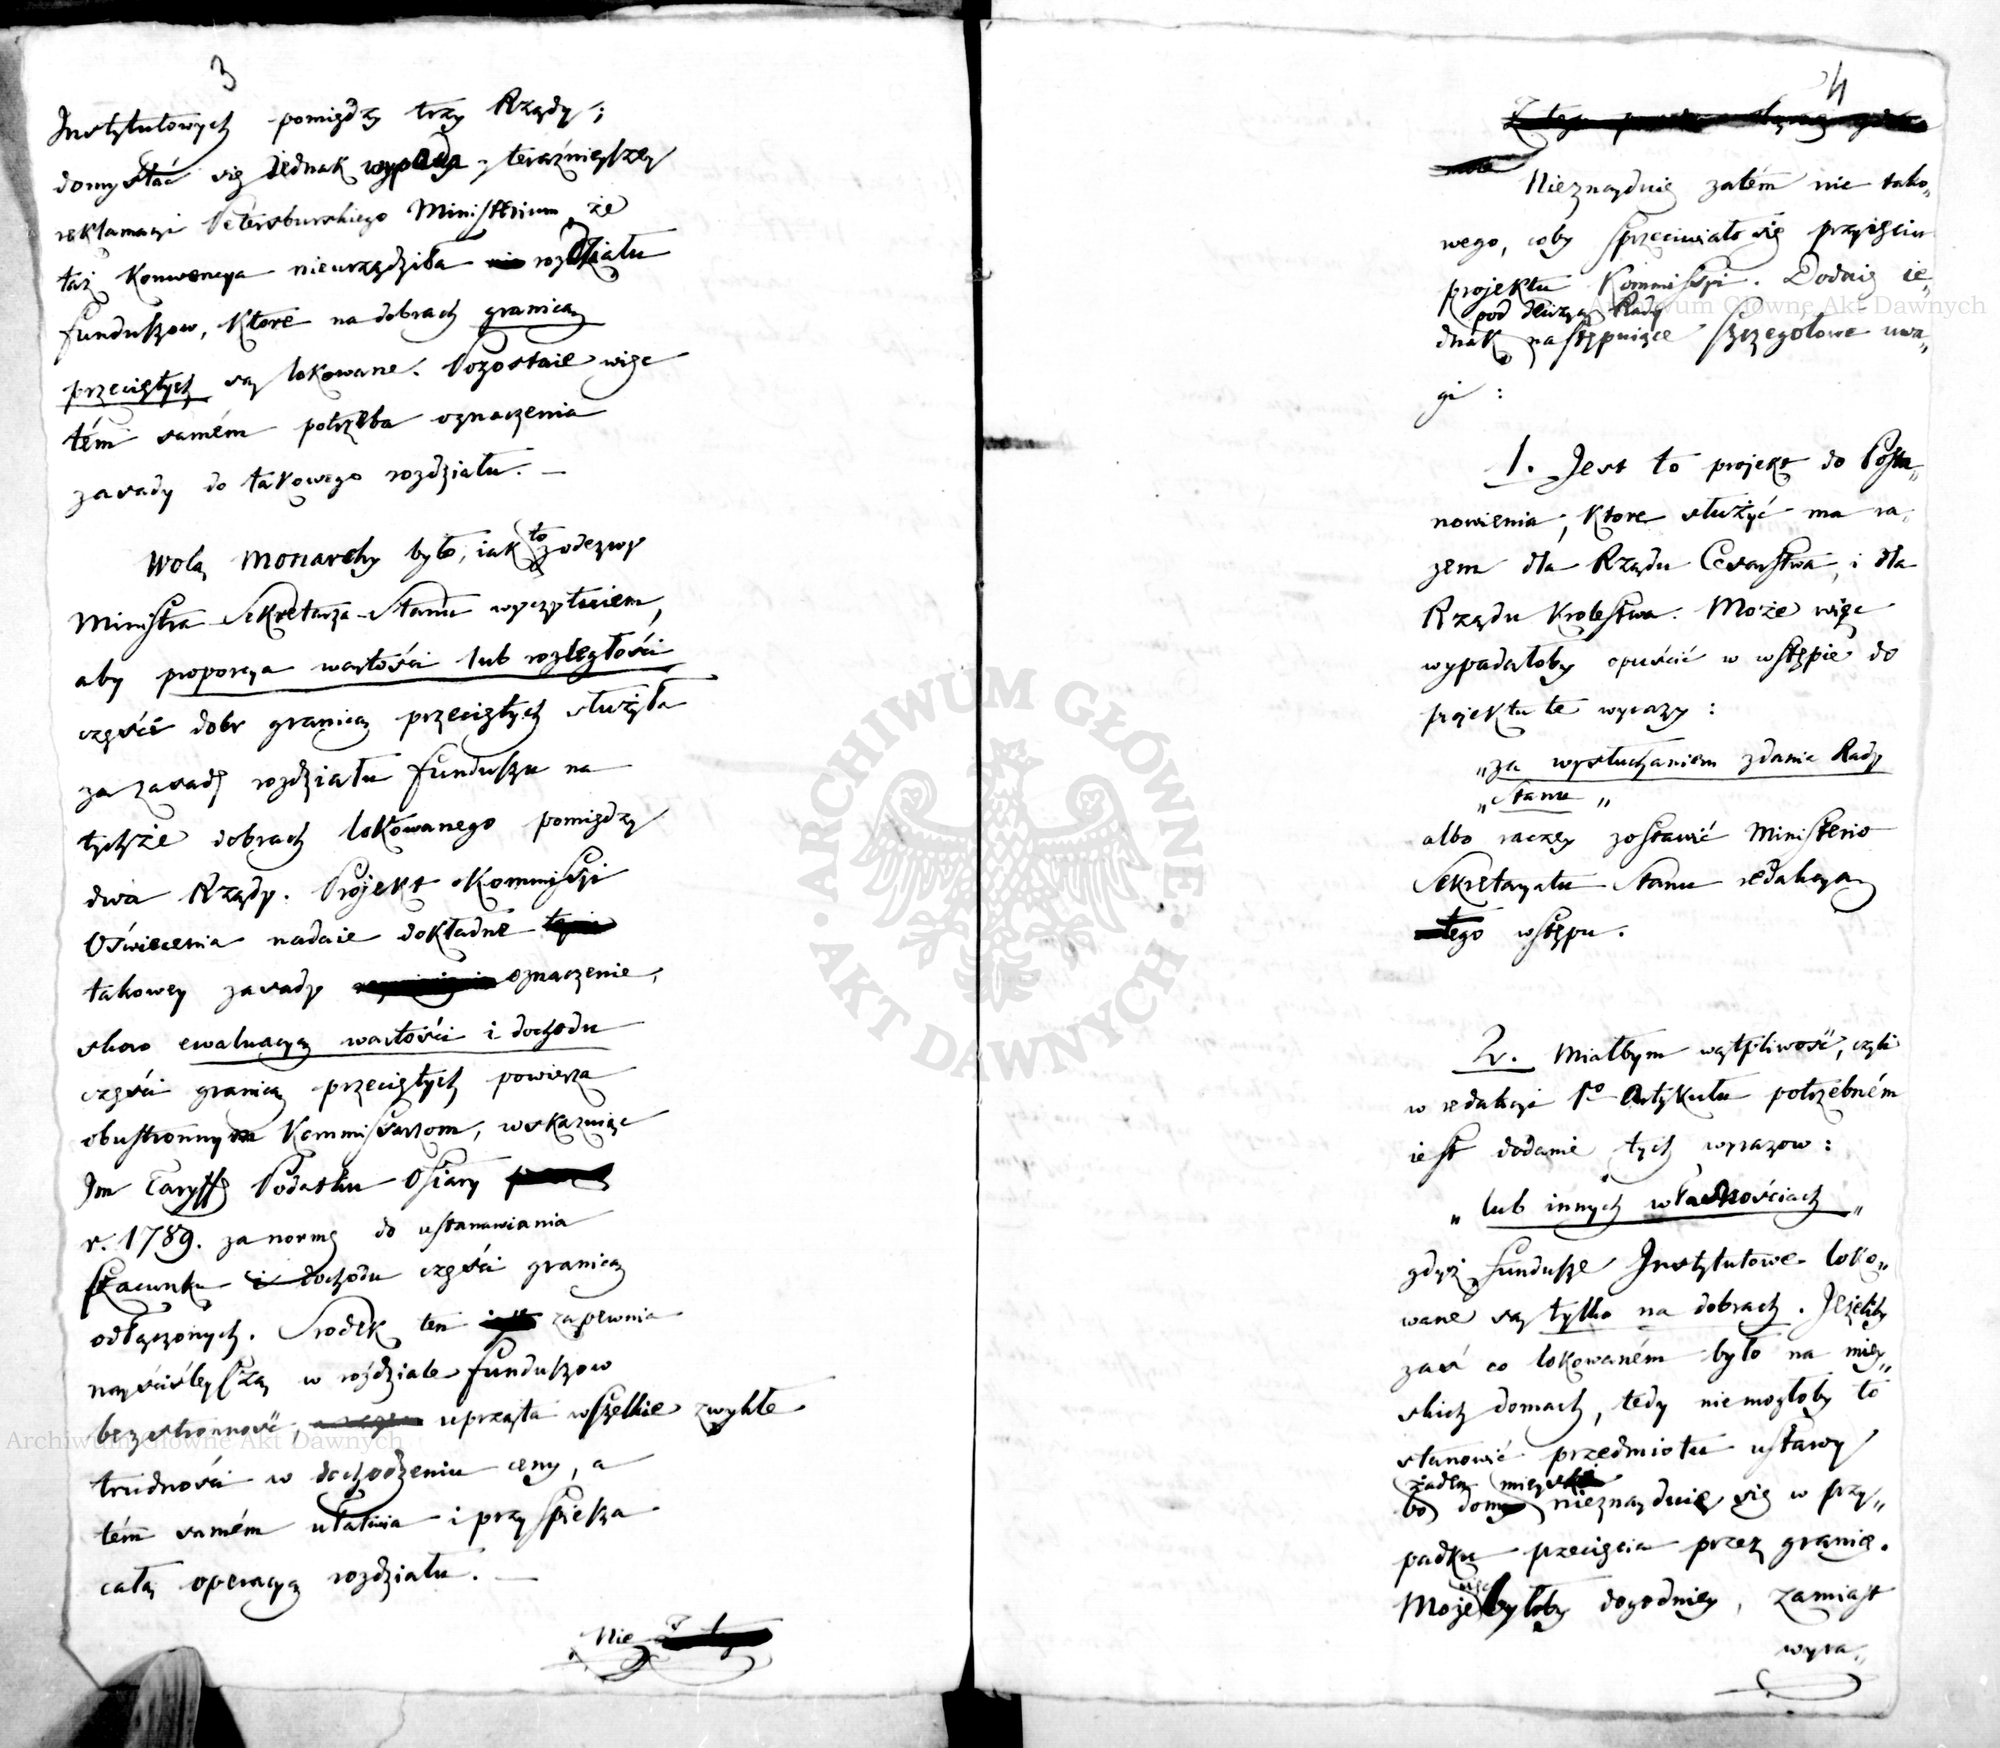 3
Instytutowych pomiędzy trzy Rządy;
domyślać się jednak wypada z teraźnieyszey
reklamacyi Petersburskiego Ministerium, że
taż Konwencya nieurządziła rozdziału
funduszow, które na dobrach granicą
przeciętych są lokowane. Pozostaie więc
tém samém potrzeba oznaczenia
zasady do takowego rozdziału. —
Wolą Monarchy było, iak to z odezwy
Ministra Sekretarza Stanu wyczytuiem,
aby proporcya wartości lub rozległości
części dobr granicą przeciętych służyła
za zasadę rozdziału funduszu na
tychże dobrach lokowanego pomiędzy
dwa Rządy. Projekt Kommissyi
Oświecenia nadaie dokładne
takowey zasady oznaczenie,
skoro ewaluacyą wartości i dochodu
części granicą przeciętych powierza
obustronnym Kommissarzom, wskazuiąc
Im Taryffę Podatku Ofiary
r. 1789. za normę do ustanawiania
szacunku i dochodu części granicą
odłączonych. Srodek ten zapewnia
nayściśleyszą w rozdziale funduszow
bezstronność, uprząta wszelkie zwykłe
trudności w dochodzeniu ceny, a
tém samém ułatwia i przyspiesza
całą operacyą rozdziału. —
Nie
4
Nieznayduię zatém nic tako„
wego, coby sprzeciwiało się przyięciu
projektu Kommissyi. Dodaię ie„
pod decyzyą Rady
dnak następuiące szczegołowe uwa„
gi :
1. Jest to projekt do Posta„
nowienia, ktore służyć ma ra„
zem dla Rządu Cesarstwa, i dla
Rządu Krolestwa. Może więc
wypadałoby opuścić w wstępie do
projektu te wyrazy :
„za wysłuchaniem zdania Rady
„Stanu„
albo raczey zostawić Ministerio
Sekretaryatu Stanu redakcyą
tego wstępu.
2. Miałbym wątpliwość, czyli
w redakcyi 1º Artykułu potrzebném
iest dodanie tych wyrazow :
„lub innych własnościach„
gdyż fundusze Instytutowe loko„
wane są tylko na dobrach. Jeżeliby
zaś co lokowaném było na miey„
skich domach, tedy niemogłoby to
stanowić przedmiotu ustawy
żaden mieyski
bo dom nieznayduie się w przy„
padku przecięcia przez granicę.
więc
Może byłoby dogodniey, zamiast
wyra„
Archiwum Główne Akt Dawnych
Archiwum Główne Akt Dawnych
ARCHIWUM GŁÓWNE · AKT DAWNYCH ·